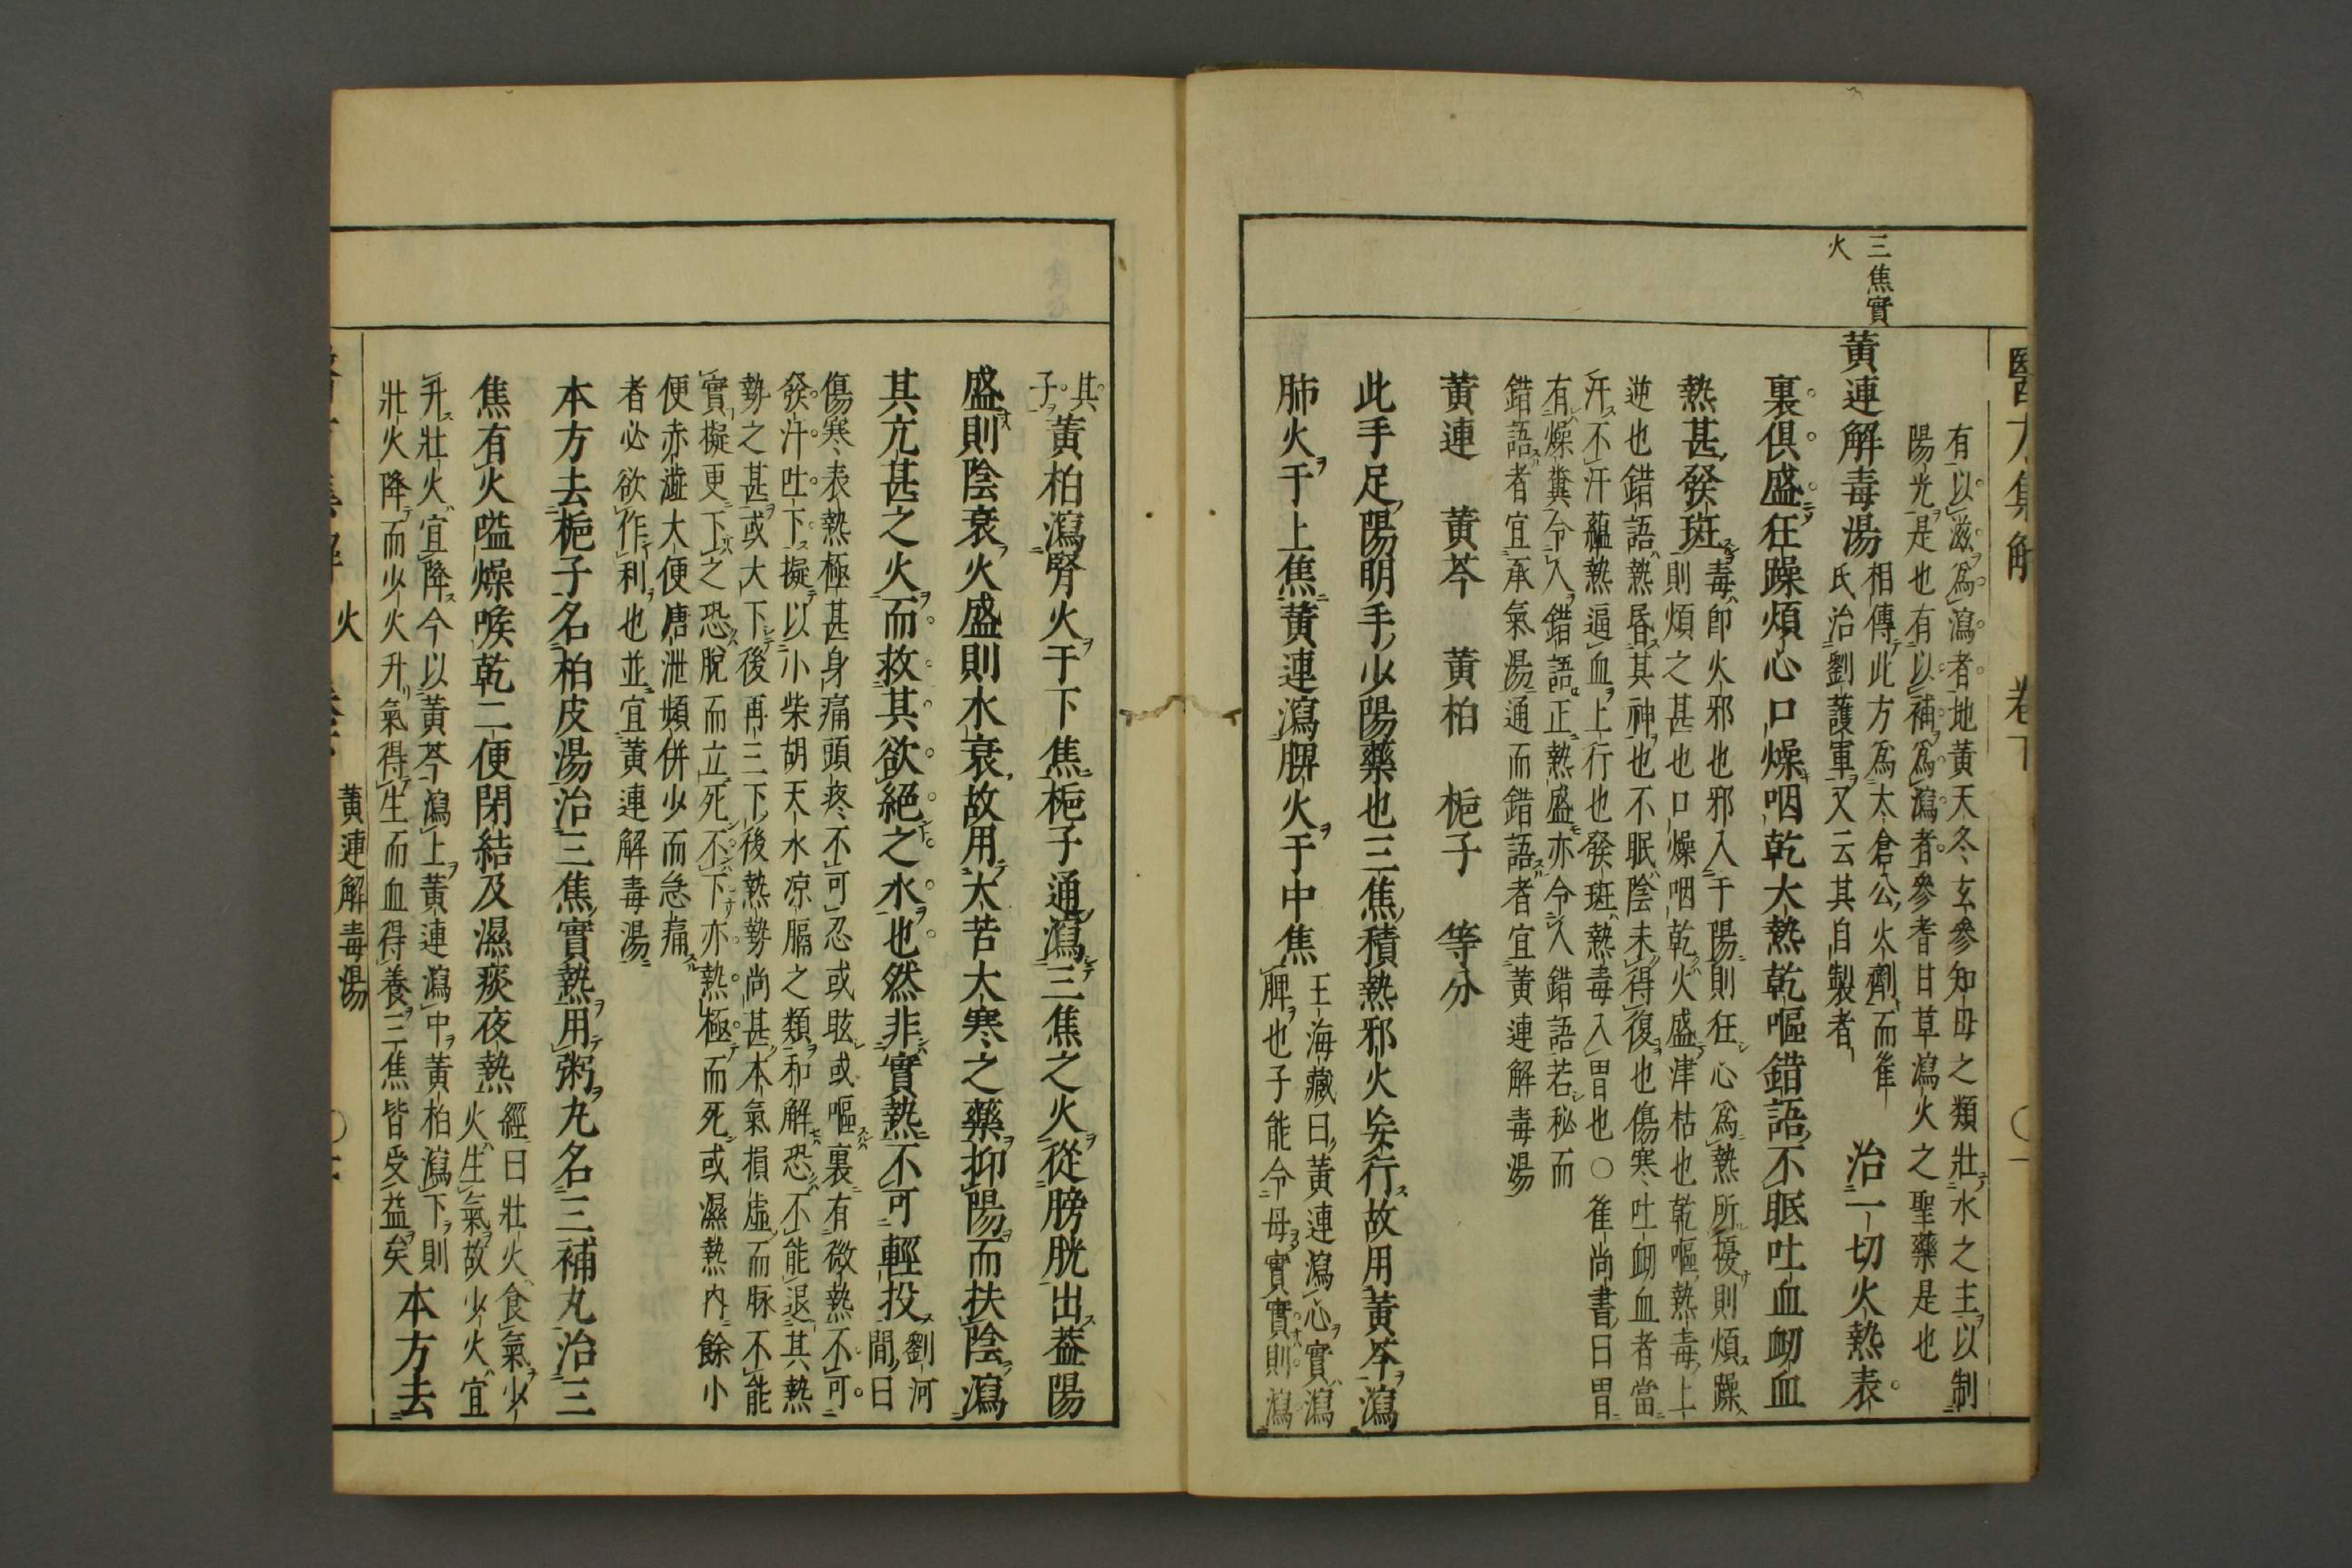 醫方集解 卷下
有以滋爲瀉者地黃天冬玄參知母之類壯水之主以制
陽光是也有以補爲瀉者參耆甘草瀉火之聖藥是也
三焦實
火
黃連解毒湯
相傳此方爲太倉公火劑而隺
氏治劉護軍又云其自製者
治一切火熱表
裏俱盛狂躁煩心口燥咽乾大熱乾嘔錯語不眠吐血衂血
熱甚發斑
毒即火邪也邪入于陽則狂心爲熱所擾則煩躁
則煩之甚也口燥咽乾火盛津枯也乾嘔熱毒上
逆也錯語熱昏其神也不眠陰未得復也傷寒吐衂血者當
汗不汗蘊熱逼血上行也發斑熱毒入胃也〇隺尚書曰胃
有燥糞令人錯語正熱盛亦令人錯語若秘而
錯語者宜承氣湯通而錯語者宜黃連解毒湯
黃連 黃芩 黃柏 梔子 等分
此手足陽明手少陽藥也三焦積熱邪火妄行故用黃芩瀉
肺火于上焦黃連瀉脾火于中焦
王海藏曰黃連瀉心實瀉
脾也子能令母實實則瀉
其
子
黃柏瀉腎火于下焦梔子通瀉三焦之火從膀胱出葢陽
盛則陰衰火盛則水衰故用大苦大寒之藥抑陽而扶陰瀉
其亢甚之火而救其欲絕之水也然非實熱不可輕投
劉河
間曰
傷寒表熱極甚身痛頭疼不可忍或眩或嘔裏有微熱不可
發汗吐下擬以小柴胡天水凉膈之類和解恐不能退其熱
勢之甚或大下後再三下後熱勢尚甚本氣損虛而脉不能
實擬更下之恐脫而立死不下亦熱極而死或濕熱內餘小
便赤澁大便唐泄頻併少而急痛
者必欲作利也並宜黃連解毒湯
本方去梔子名柏皮湯治三焦實熱用粥丸名三補丸治三
焦有火嗌燥喉乾二便閉結及濕痰夜熱
經曰壯火食氣少
火生氣故少火宜
升壯火宜降今以黃芩瀉上黃連瀉中黃柏瀉下則
壯火降而少火升氣得生而血得養三焦皆受益矣
本方去
火
黃連解毒湯